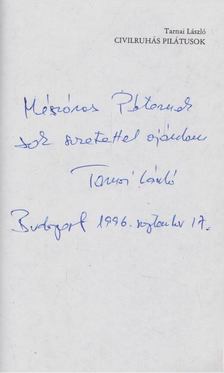 Tarnai László
CIVILRUHÁS PILÁTUSOK
Mészáros Péternek
sok szeretettel ajánlom
Tarnai László
Budapest 1996. szeptember 17.